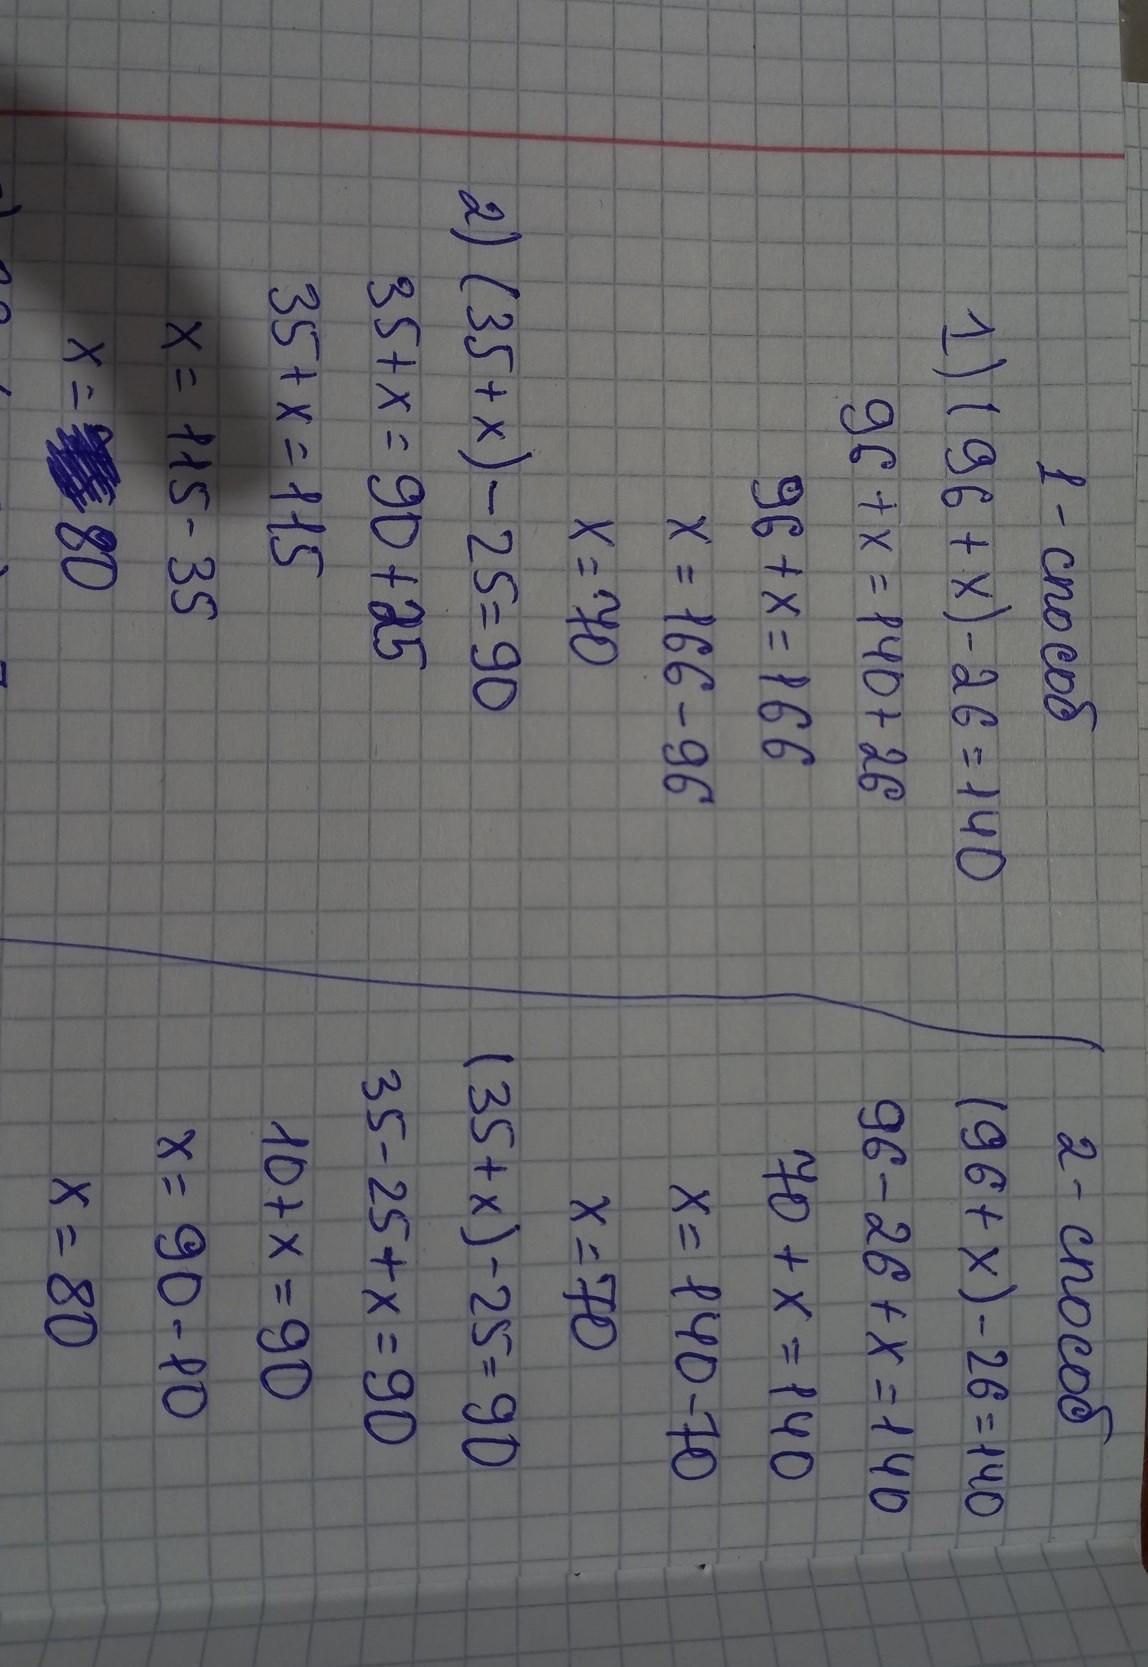 1 - способ
1) (96 + x) - 26 = 140
96 + x = 140 + 26
96 + x = 166
x = 166 - 96
x = 70
2) (35 + x) - 25 = 90
35 + x = 90 + 25
35 + x = 115
x = 115 - 35
x = 80
2 - способ
(96 + x) - 26 = 140
96 - 26 + x = 140
70 + x = 140
x = 140 - 70
x = 70
(35 + x) - 25 = 90
35 - 25 + x = 90
10 + x = 90
x = 90 - 10
x = 80